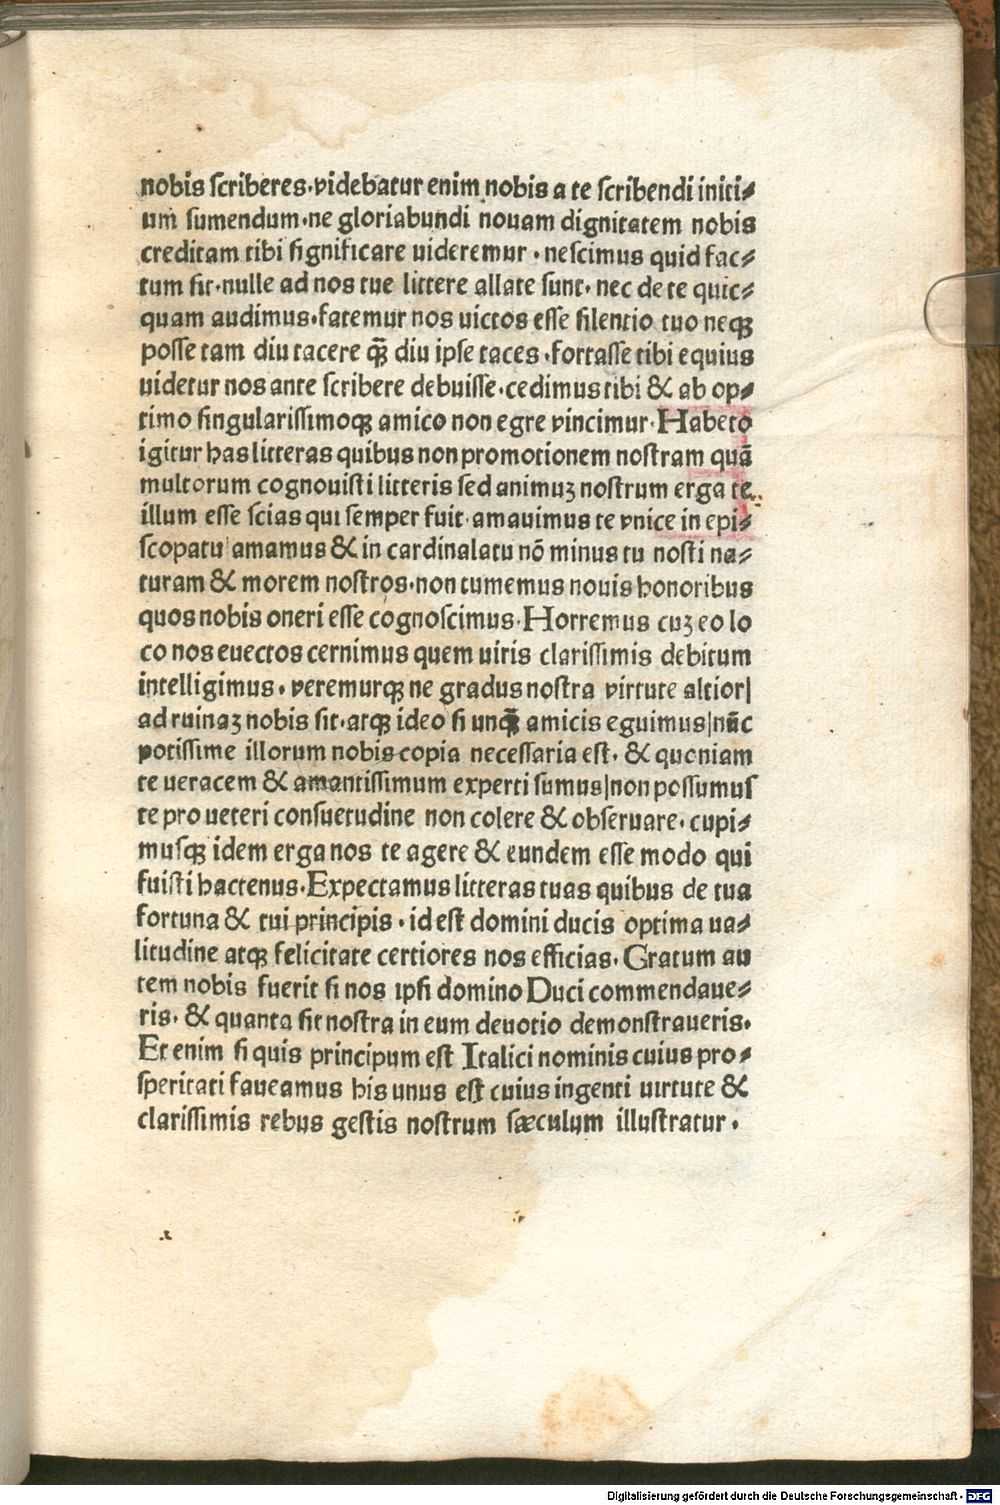 nobis scriberes·videbatur enim nobis a te scribendi inici⸗
um sumendum·ne gloriabundi nouam dignitatem nobis
creditam tibi significare uideremur · nescimus quid fac⸗
tum sit·nulle ad nos tue littere allate sunt· nec de te quic⸗
quam audimus·fatemur nos uictos esse silentio tuo neqꝫ
posse tam diu tacere qꝫ̄ diu ipse taces ·fortasse tibi equius
uidetur nos ante scribere debuisse·cedimus tibi & ab op⸗
timo singularissimoqꝫ amico non egre vincimur· Habeto
igitur has litteras quibus non promotionem nostram quā
multorum cognouisti litteris sed animuꝫ nostrum erga te
illum esse scias qui semper fuit·amauimus te vnice in epi⸗
scopatu amamus & in cardinalatu nō minus tu nosti na⸗
turam & morem nostros·non tumemus nouis honoribus
quos nobis oneri esse cognoscimus·Horremus cuꝫ eo lo
co nos euectos cernimus quem uiris clarissimis debitum
intelligimus· veremurqꝫ ne gradus nostra virtute altior|
ad ruinaꝫ nobis sit·atqꝫ ideo si unqꝫ̄ amicis eguimus|nūc
potissime illorum nobis copia necessaria est· & quoniam
te ueracem & amantissimum experti sumus|non possumus
te pro ueteri consuetudine non colere & obseruare· cupi⸗
musqꝫ idem erga nos te agere & eundem esse modo qui
fuisti hactenus·Expectamus litteras tuas quibus de tua
fortuna & tui principis · id est domini ducis optima ua⸗
litudine atqꝫ felicitate certiores nos efficias· Gratum au
tem nobis fuerit si nos ipsi domino Duci commendaue⸗
ris· & quanta sit nostra in eum deuotio demonstraueris·
Et enim si quis principum est Italici nominis cuius pro⸗
speritati faueamus his unus est cuius ingenti uirtute &
clarissimis rebus gestis nostrum sæculum illustratur ·
Digitalisierung gefördert durch die Deutsche Forschungsgemeinschaft - DFG